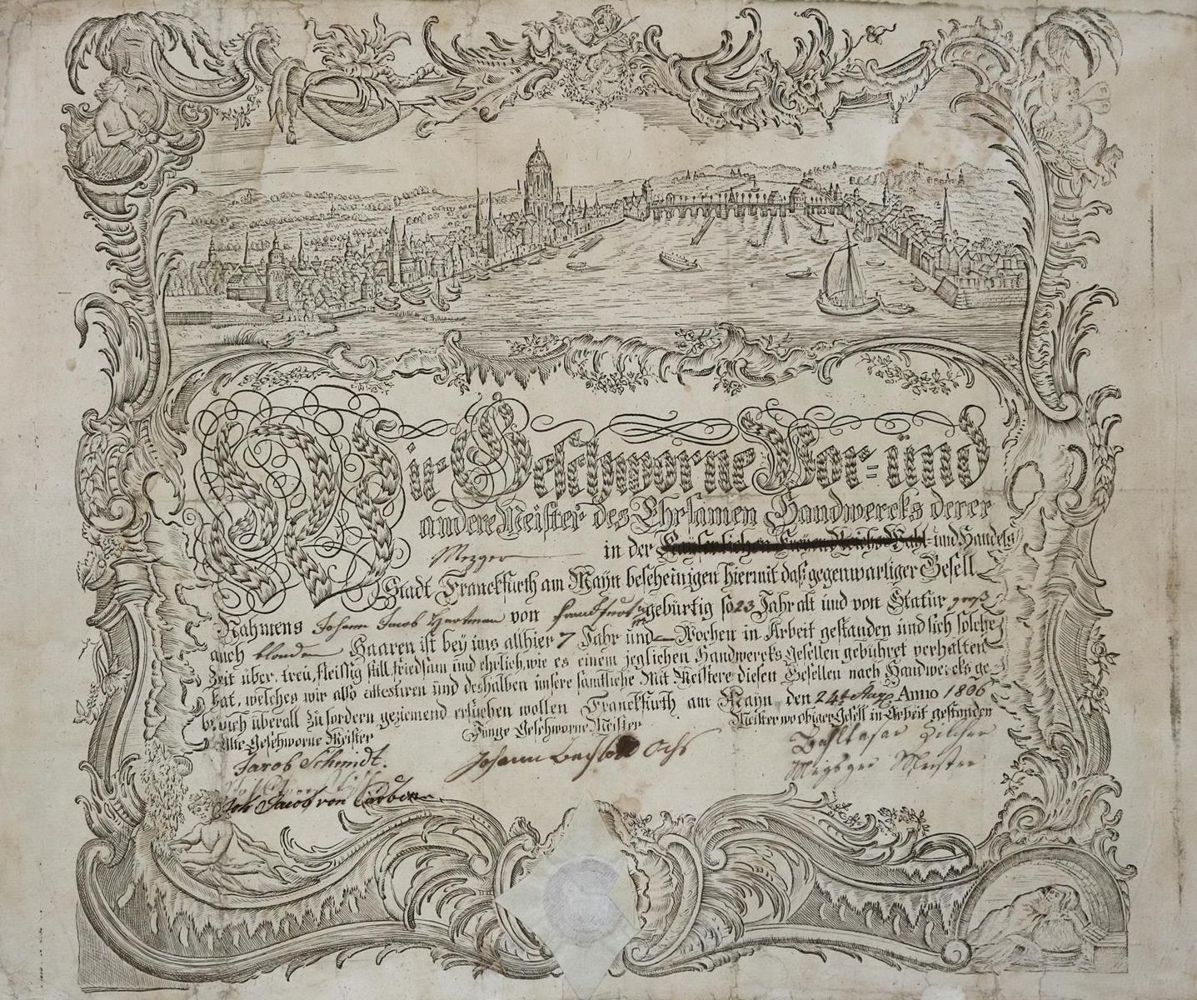 Wir Geschworne Vor- und
andere Meister des Ehrsamen Handwercks derer
Mezger in der und Handels
Stadt Franckfurth am Mayn bescheinigen hiermit daß gegenwärtiger Gesell
Nahmens Johann Jacob Hartman von Franckfurt gebürtig so 23 Jahr alt und von Statur groß
auch blonden Haaren ist bey uns allhier 7 Jahr und — Wochen in Arbeit gestanden und sich solche
Zeit über, treu, fleisig still friedsam und ehrlich, wie es einem jeglichen Handwercks Gesellen gebühret verhalten
hat, welches wir also attestiren und deshalben unsere sämtliche Mit Meistere diesen Gesellen nach Handwercks ge-
brauch überall zu fordern geziemend ersuchen wollen Franckfurth am Mayn den 24t Anno 1806
Alte Geschworne Meister Junge Geschworne Meister Meister wo obiger Gesell in Arbeit gestanden
Jacob Schmidt. Johann Ochs Balthasar
Joh Jacob von Carben Meister